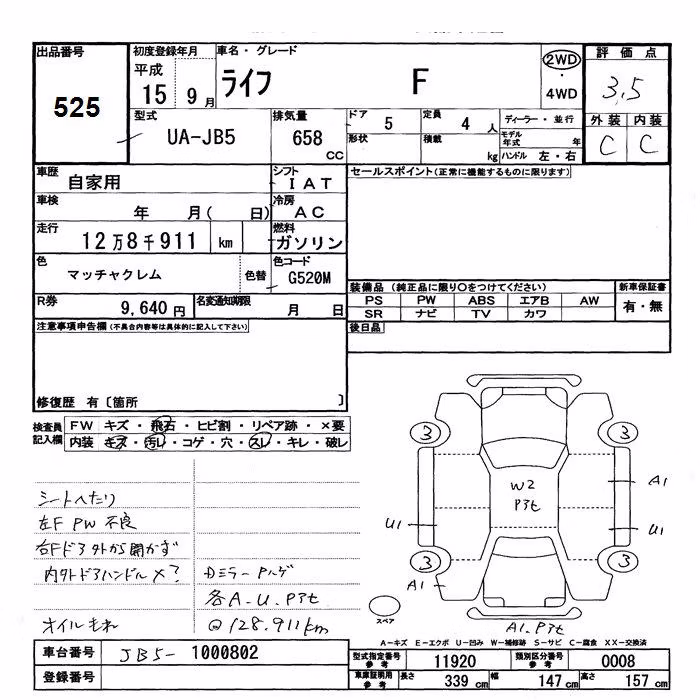 出品番号 525
初度登録年月 平成 15年 9月
車名・グレード ライフ F
2WD・4WD
評価点 3,5
外装 C 内装 C
型式 UA-JB5
排気量 658 CC
ドア 5
形状
定員 4 人
積載 kg
ディーラー・並行
モデル年式 年
ハンドル 左・右
車歴 自家用
シフト IAT
車検 年 月( 日)
冷房 AC
走行 12万8千911 km
燃料 ガソリン
色 マッチャクレム 色替
色コード G520M
R券 9,640 円
名変通知期限 月 日
セールスポイント(正常に機能するものに限ります)
装備品 (純正品に限り○をつけてください)
新車保証書 有・無
PS PW ABS エアB AW
SR ナビ TV カワ
後日品
注意事項申告欄(不具合内容等は具体的に記入して下さい)
修復歴 有〔箇所 〕
検査員記入欄
FW キズ・飛石・ヒビ割・リペア跡・×要
内装 キズ・汚れ・コゲ・穴・スレ・キレ・破レ
シートへたり
左F PW 不良
右Fドア外から開かず
内外ドアハンドル×?
オイルもれ
Dミラー Pハゲ
各A.U.Pヌケ
@128.911km
3 3
W2
A1
U1 U1
3 3
A1
スペア
A1.
A-キズ E-エクボ U-凹み W-補修跡 S-サビ C-腐食 XX-交換済
車台番号 JB5- 1000802
登録番号
型式指定番号参考 11920
類別区分番号参考 0008
車庫証明用参考 長さ 339 cm 幅 147 cm 高さ 157 cm